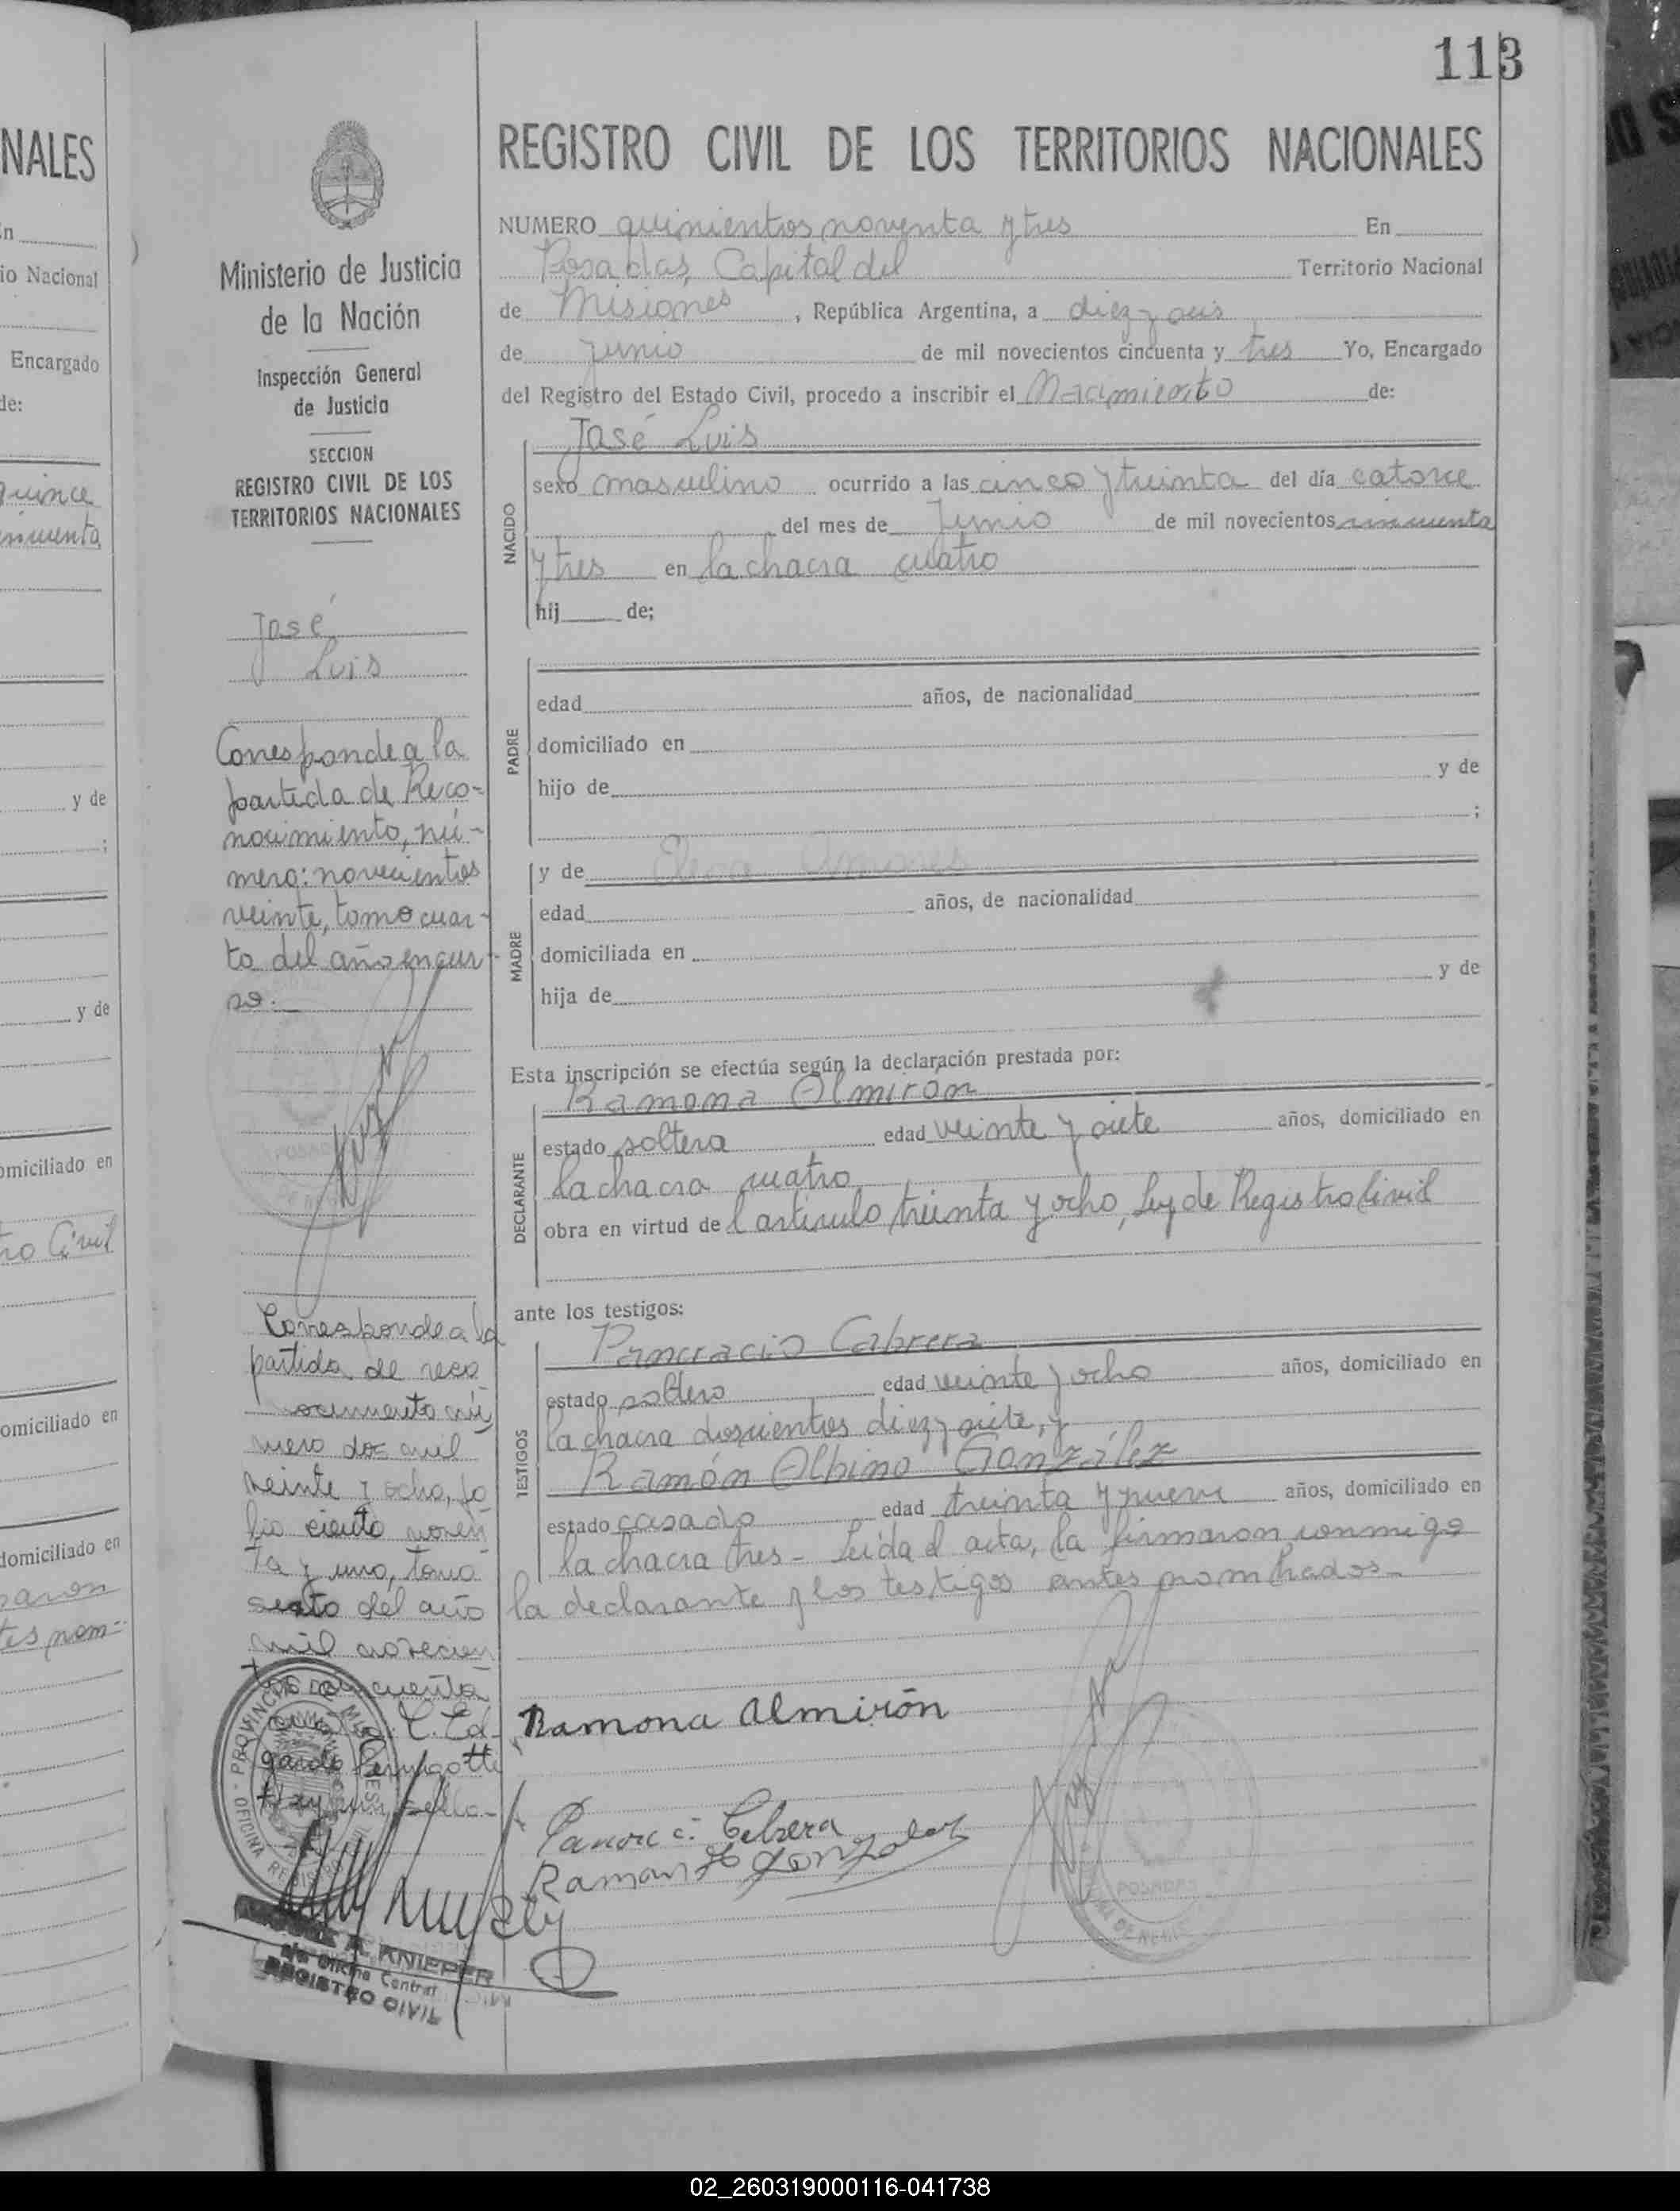 113
REGISTRO CIVIL DE LOS TERRITORIOS NACIONALES
Ministerio de Justicia
de la Nación
Inspección General
de Justicia
SECCION
REGISTRO CIVIL DE LOS
TERRITORIOS NACIONALES
José
Luis
Corresponde a la
partida de Reco-
nocimiento, nú-
mero: novecientos
veinte, tomo cuar-
to del año en cur-
so.
Corresponde a la
partida de reco
nocimiento nú
mero dos mil
veinte y ocho, fo
lio ciento noven
ta y uno, tomo
sexto del año
mil novecien
tos cincuenta
Ed-
gardo
Hay un sello-
PROVINCIA DE MISIONES
OFICINA
A. KNIEPER
Oficina Central
REGISTRO CIVIL
NUMERO quinientos noventa y tres En
Posadas, Capital del Territorio Nacional
de Misiones, República Argentina, a diez y seis
de Junio de mil novecientos cincuenta y tres Yo, Encargado
del Registro del Estado Civil, procedo a inscribir el Nacimiento de:
NACIDO
José Luis
sexo masculino ocurrido a las cinco y treinta del día catorce
del mes de Junio de mil novecientos cincuenta
y tres en la chacra cuatro
hij de;
PADRE
edad años, de nacionalidad
domiciliado en
hijo de y de
;
MADRE
y de
edad años, de nacionalidad
domiciliada en
hija de y de
Esta inscripción se efectúa según la declaración prestada por:
DECLARANTE
Ramona Almirón
estado soltera edad veinte y siete años, domiciliado en
la chacra cuatro
obra en virtud del artículo treinta y ocho, Ley de Registro Civil
ante los testigos:
TESTIGOS
Pancracio Cabrera
estado soltero edad veinte y ocho años, domiciliado en
la chacra doscientos diez y siete, y
Ramón Albino González
estado casado edad treinta y nueve años, domiciliado en
la chacra tres - Leída el acta, la firmaron conmigo
la declarante y los testigos antes nombrados.-
Ramona Almirón
Cabrera
Ramon Gonzalez
POSADAS
NALES
En
io Nacional
Encargado
de:
quince
cincuenta
y de
;
y de
omiciliado en
ro Civil
omiciliado en
domiciliado en
maron
tes nom-
02_260319000116-041738